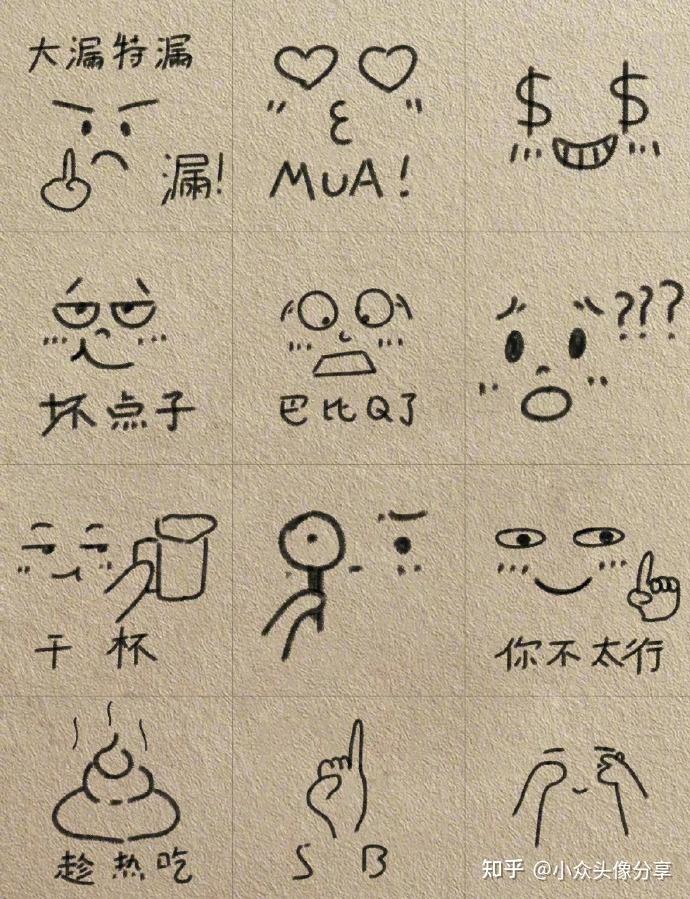 大漏特漏
漏!
MUA!
$ $
坏点子
巴比Q了
???
干 杯
你不太行
趁热吃
S B
知乎 @小众头像分享